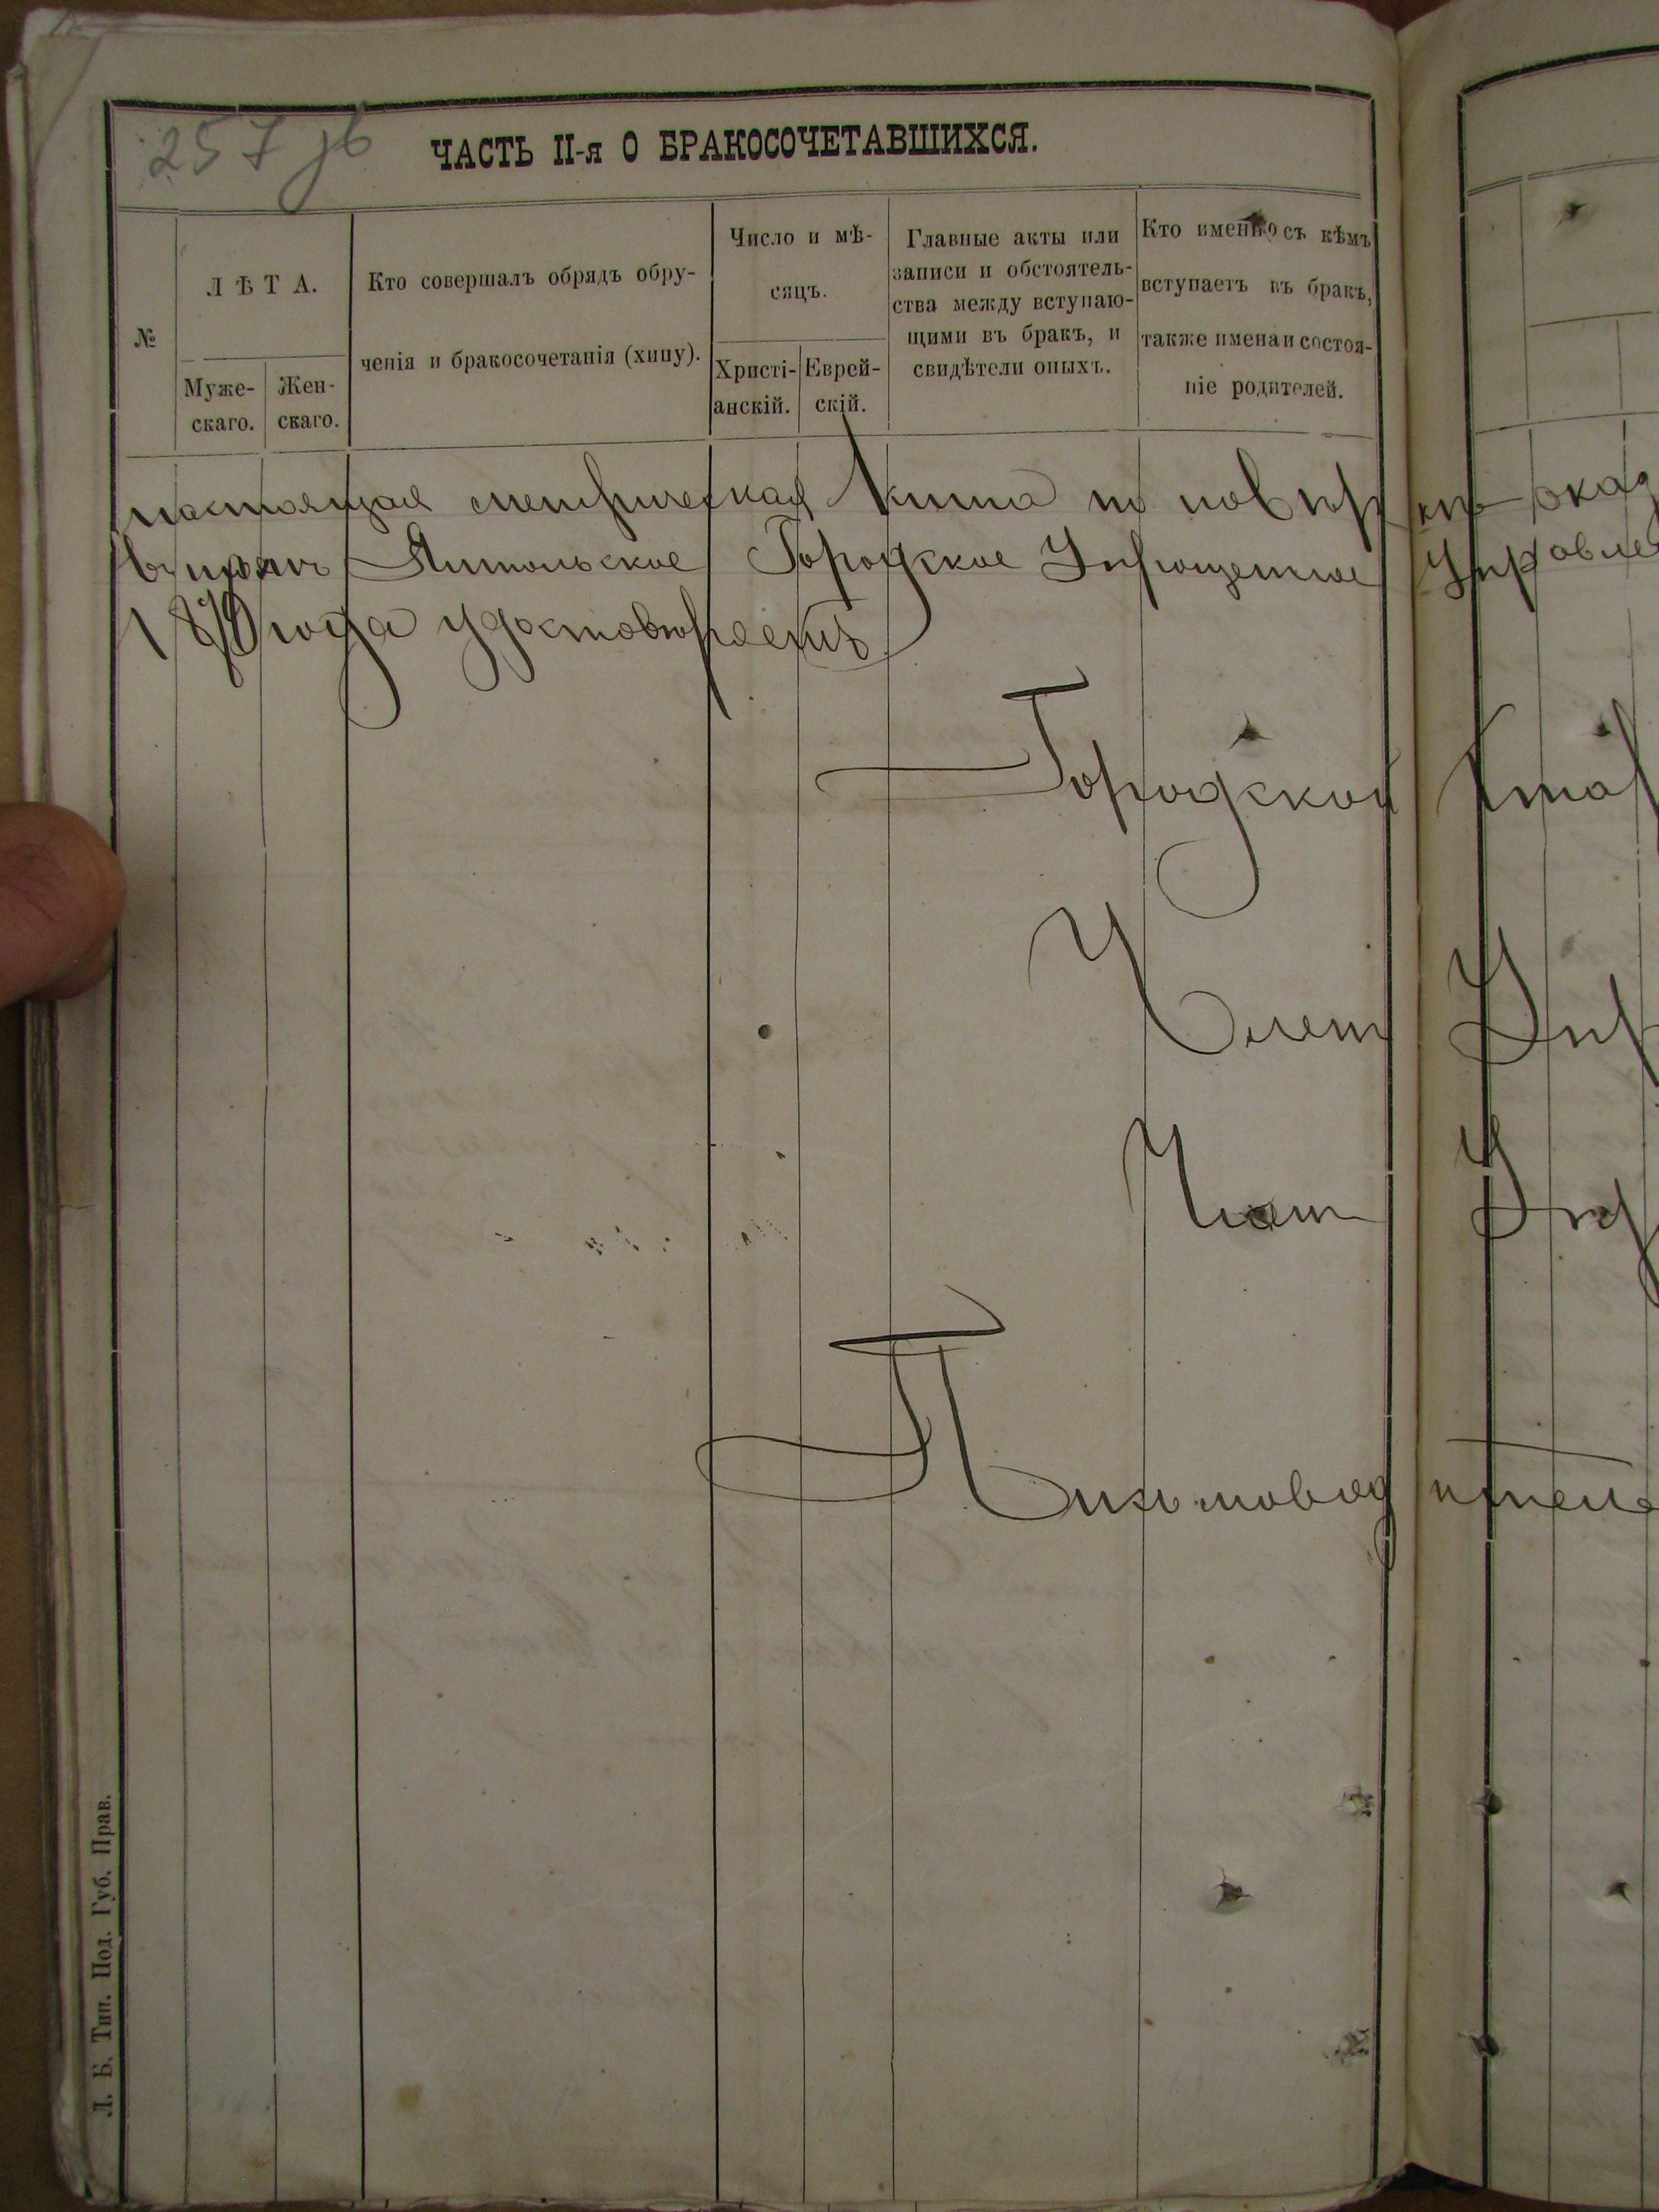 257 зб
ЧАСТЬ II-я О БРАКОСОЧЕТАВШИХСЯ.
№
ЛѢТА.
Муже-
скаго.
Жен-
скаго.
Кто совершалъ обрядъ обру-
ченія и бракосочетанія (хипу).
Число и мѣ-
сяцъ.
Христі-
анскій.
Еврей-
скій.
Главные акты или
записи и обстоятель-
ства между вступаю-
щими въ бракъ, и
свидѣтели оныхъ.
Кто именно съ кѣмъ
вступаетъ въ бракъ,
также имена и состоя-
ніе родителей.
настоящая метрическая книга по повѣркѣ оказ
Ямпольское Городское Упрощенное Управле
года удостовѣряетъ
Городской Ста
Член Упр
Член Упр
Письмоводителе
Л. Б. Тип. Под. Губ. Прав.